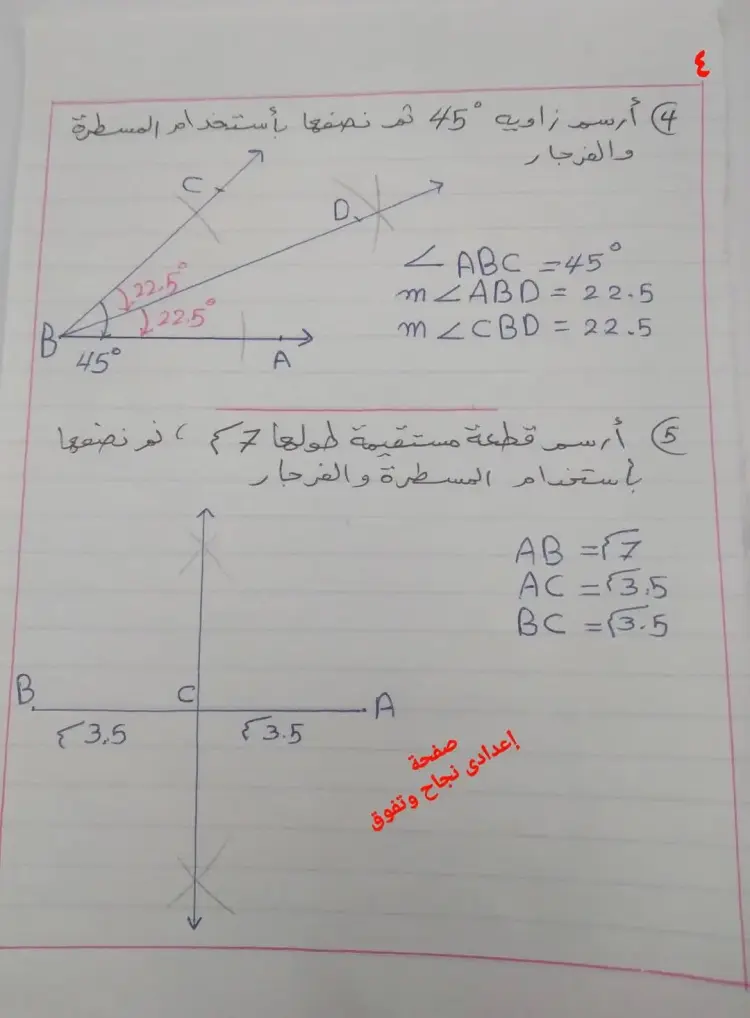 ٤
④ أرسم زاويه 45° ثم نصفها بأستخدام المسطرة
والفرجار
C
D
22.5°
22.5°
B
45°
A
∠ABC = 45°
m∠ABD = 22.5
m∠CBD = 22.5
⑤ أرسم قطعة مستقيمة طولها 7 سم ، ثم نصفها
بأستخدام المسطرة والفرجار
AB = 7 سم
AC = 3.5 سم
BC = 3.5 سم
B
C
A
3.5 سم
3.5 سم
صفحة
إعدادى نجاح وتفوق